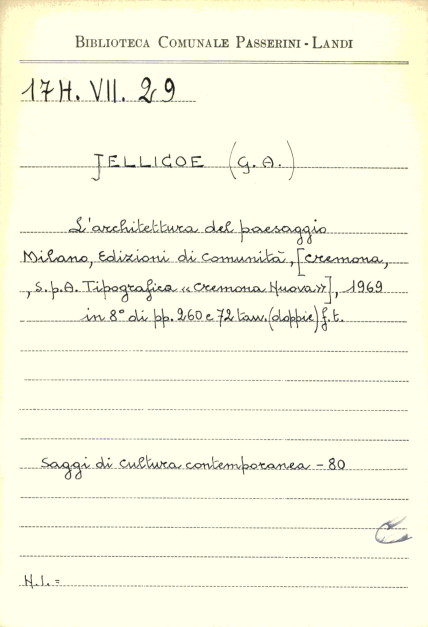 BIBLIOTECA COMUNALE PASSERINI - LANDI
17H. VII. 29
JELLICOE (G. A.)
L'architettura del paesaggio
Milano, Edizioni di Comunità, [Cremona,
, S.p.A. Tipografica «Cremona Nuova»], 1969
in 8° di pp. 260 e 72 tav. (doppie) f. t.
Saggi di cultura contemporanea - 80
N.I. =